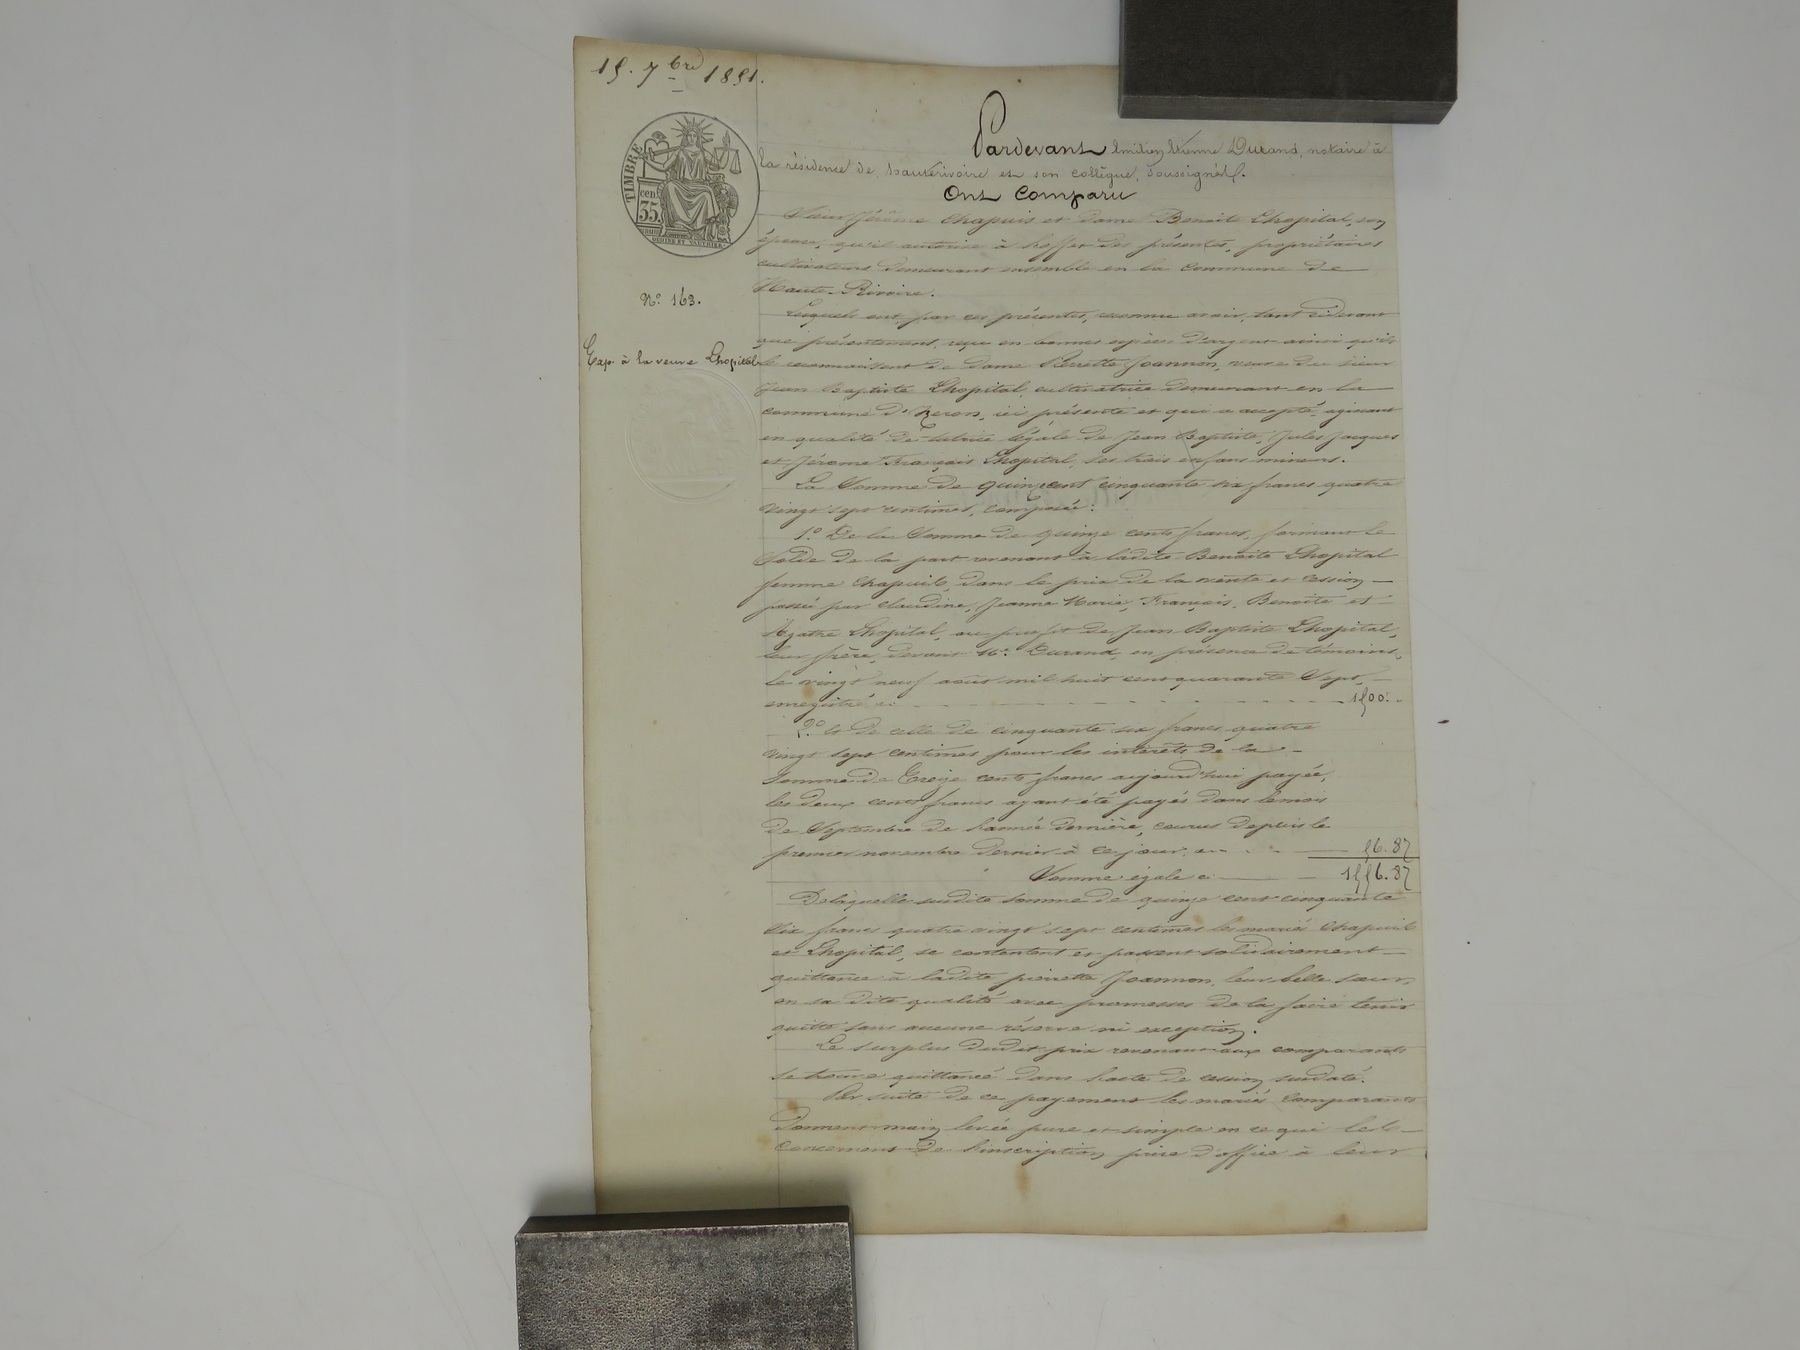 15. 7bre 1851.
TIMBRE
cen
35.
N° 163.
Exp. à la veuve Lhopital
Pardevant Emilien Etienne Durand, notaire à
la résidence de hauterivoire et son collègue, soussignés.
Ont Comparu
Sieur Jérôme Chapuis et Dame Benoite Lhopital, son
épouse, qu'il autorise à l'effet des présentes, propriétaires
cultivateurs demeurant ensemble en la commune de
Haute-Rivoire.
Lesquels ont, par ces présentes, reconnu avoir, tant cidevant
que présentement, reçu en bonnes espèces d'argent ainsi qu'ils
le reconnaissent de dame Pierrette Joannon, veuve du sieur
Jean Baptiste Lhopital, cultivatrice demeurant en la
commune d'Izeron, ici présente et qui a accepté, agissant
en qualité de tutrice légale de Jean Baptiste, Jules Jacques
et Jérome François Lhopital, ses trois enfans mineurs.
La Somme de quinze cent cinquante six francs quatre
vingt sept centimes, composée:
1° De la Somme de quinze cents francs, formant le
Solde de la part revenant à ladite Benoite Lhopital
femme Chapuis, dans le prix de la vente et cession
passée par Claudine, Jeanne Marie, François, Benoite et
Agathe Lhopital, au profit de Jean Baptiste Lhopital,
leur frère, devant Me Durand, en présence de témoins,
le vingt neuf août mil huit cent quarante Sept,
enregistré ci 1500.
2° Et de celle de cinquante six francs quatre
vingt sept centimes pour les intérêts de la
Somme de Treize cents francs aujourd'hui payée,
les deux cents francs ayant été payés dans le mois
de Septembre de l'année dernière, courus depuis le
premier novembre dernier à ce jour, ci 56.87
Somme égale ci 1556.87
De laquelle susdite somme de quinze cent cinquante
Six francs quatre vingt sept centimes les mariés Chapuis
et Lhopital, se contentent et passent solidairement
quittance à ladite pierrette Joannon, leur belle sœur,
en sa dite qualité avec promesses de la faire tenir
quitte sans aucune réserve ni exception.
Le surplus dudit prix revenant aux comparants
se trouve quittancé dans l'acte de cession susdaté.
Par suite de ce payement les mariés comparants
donnent main levée pure et simple en ce qui les
concernent de l'inscription prise d'office à leur